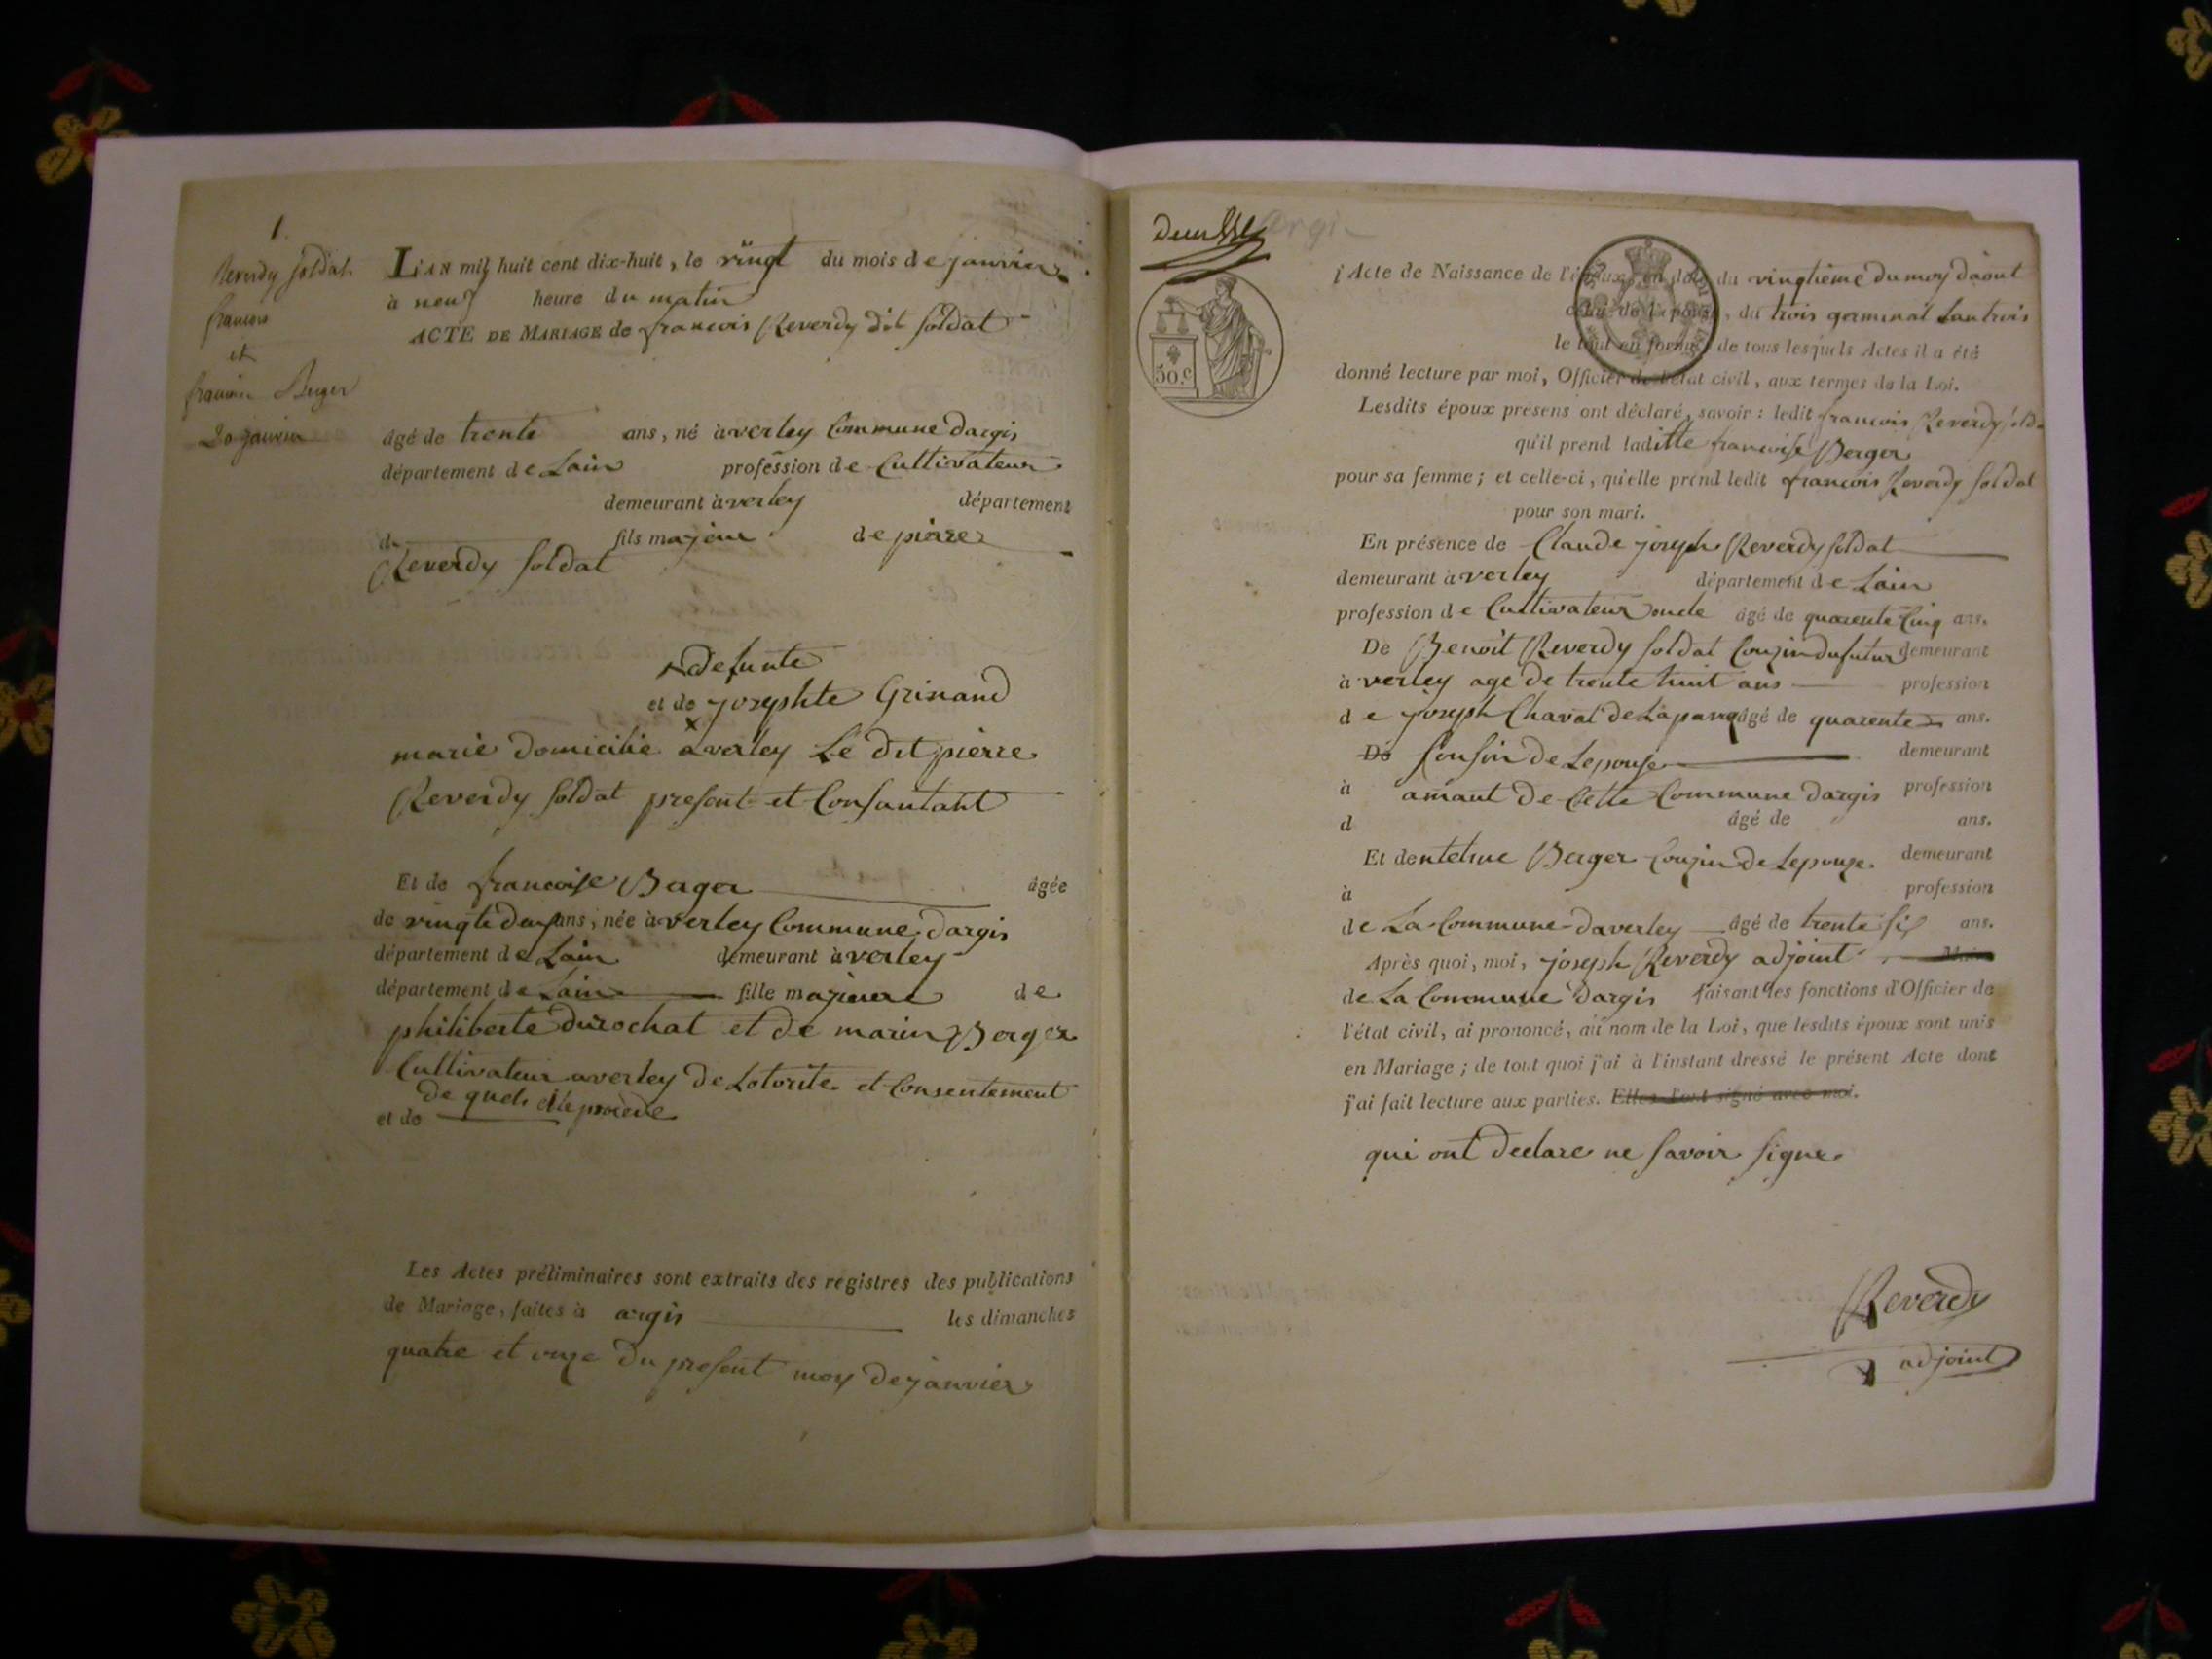 1.
Reverdy soldat
francois
et
francoise Berger
20 janvier
L'AN mil huit cent dix-huit, le vingt du mois de janvier
à neuf heure du matin
ACTE DE MARIAGE de francois Reverdy dit soldat
âgé de trente ans, né à verley Commune dargis
département de Lain profession de Cultivateur
demeurant à verley département
de fils majeur de pierre
Reverdy soldat
defunte
et de josephte Grinand
marié domicilié a verley Le dit pierre
Reverdy soldat present et Consantant
Et de francoise Berger âgée
de vingt deux ans, née à verley Commune dargis
département de Lain demeurant à verley
département de Lain fille majeure de
philiberte durochat et de marin Berger
Cultivateur a verley de Lotorite et Consentement
de quels elle procède
et de
Les Actes préliminaires sont extraits des registres des publications
de Mariage, faites à argis les dimanches
quatre et onze du present moy de janvier
50.c
l'Acte de Naissance de l'époux, en date du vingtieme du moy daout
celui de l'épouse, du trois germinal lan trois
le tout en forme; de tous lesquels Actes il a été
donné lecture par moi, Officier de l'état civil, aux termes de la Loi.
Lesdits époux présens ont déclaré, savoir: ledit francois Reverdy sold
qu'il prend laditte francoise Berger
pour sa femme; et celle-ci, qu'elle prend ledit francois Reverdy soldat
pour son mari.
En présence de Claude joseph Reverdy soldat
demeurant à verley département de Lain
profession de Cultivateur oncle âgé de quarente Cinq ans.
De Benoit Reverdy soldat Couzin du futur demeurant
à verley age de trente huit ans profession
de joseph Chavat de âgé de quarente ans.
De Cousin de Lepouse demeurant
à amant de Cette Commune dargis profession
d âgé de ans.
Et de Berger Couzin de Lepouze demeurant
à profession
de La Commune daverley âgé de trente six ans.
Après quoi, moi, joseph Reverdy adjoint Maire
de La Commune dargis faisant les fonctions d'Officier de
l'état civil, ai prononcé, au nom de la Loi, que lesdits époux sont unis
en Mariage; de tout quoi j'ai à l'instant dressé le présent Acte dont
j'ai fait lecture aux parties. Elles l'ont signé avec moi.
qui ont declare ne savoir signe
Reverdy
adjoint